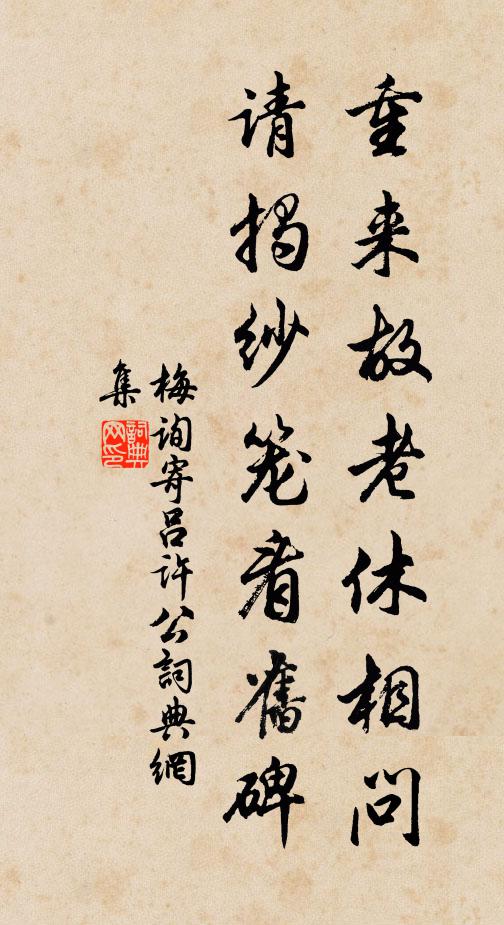 重来故老休相问
请揭纱笼看舊碑
梅询寄吕许公詞典網
集
詞典
网印